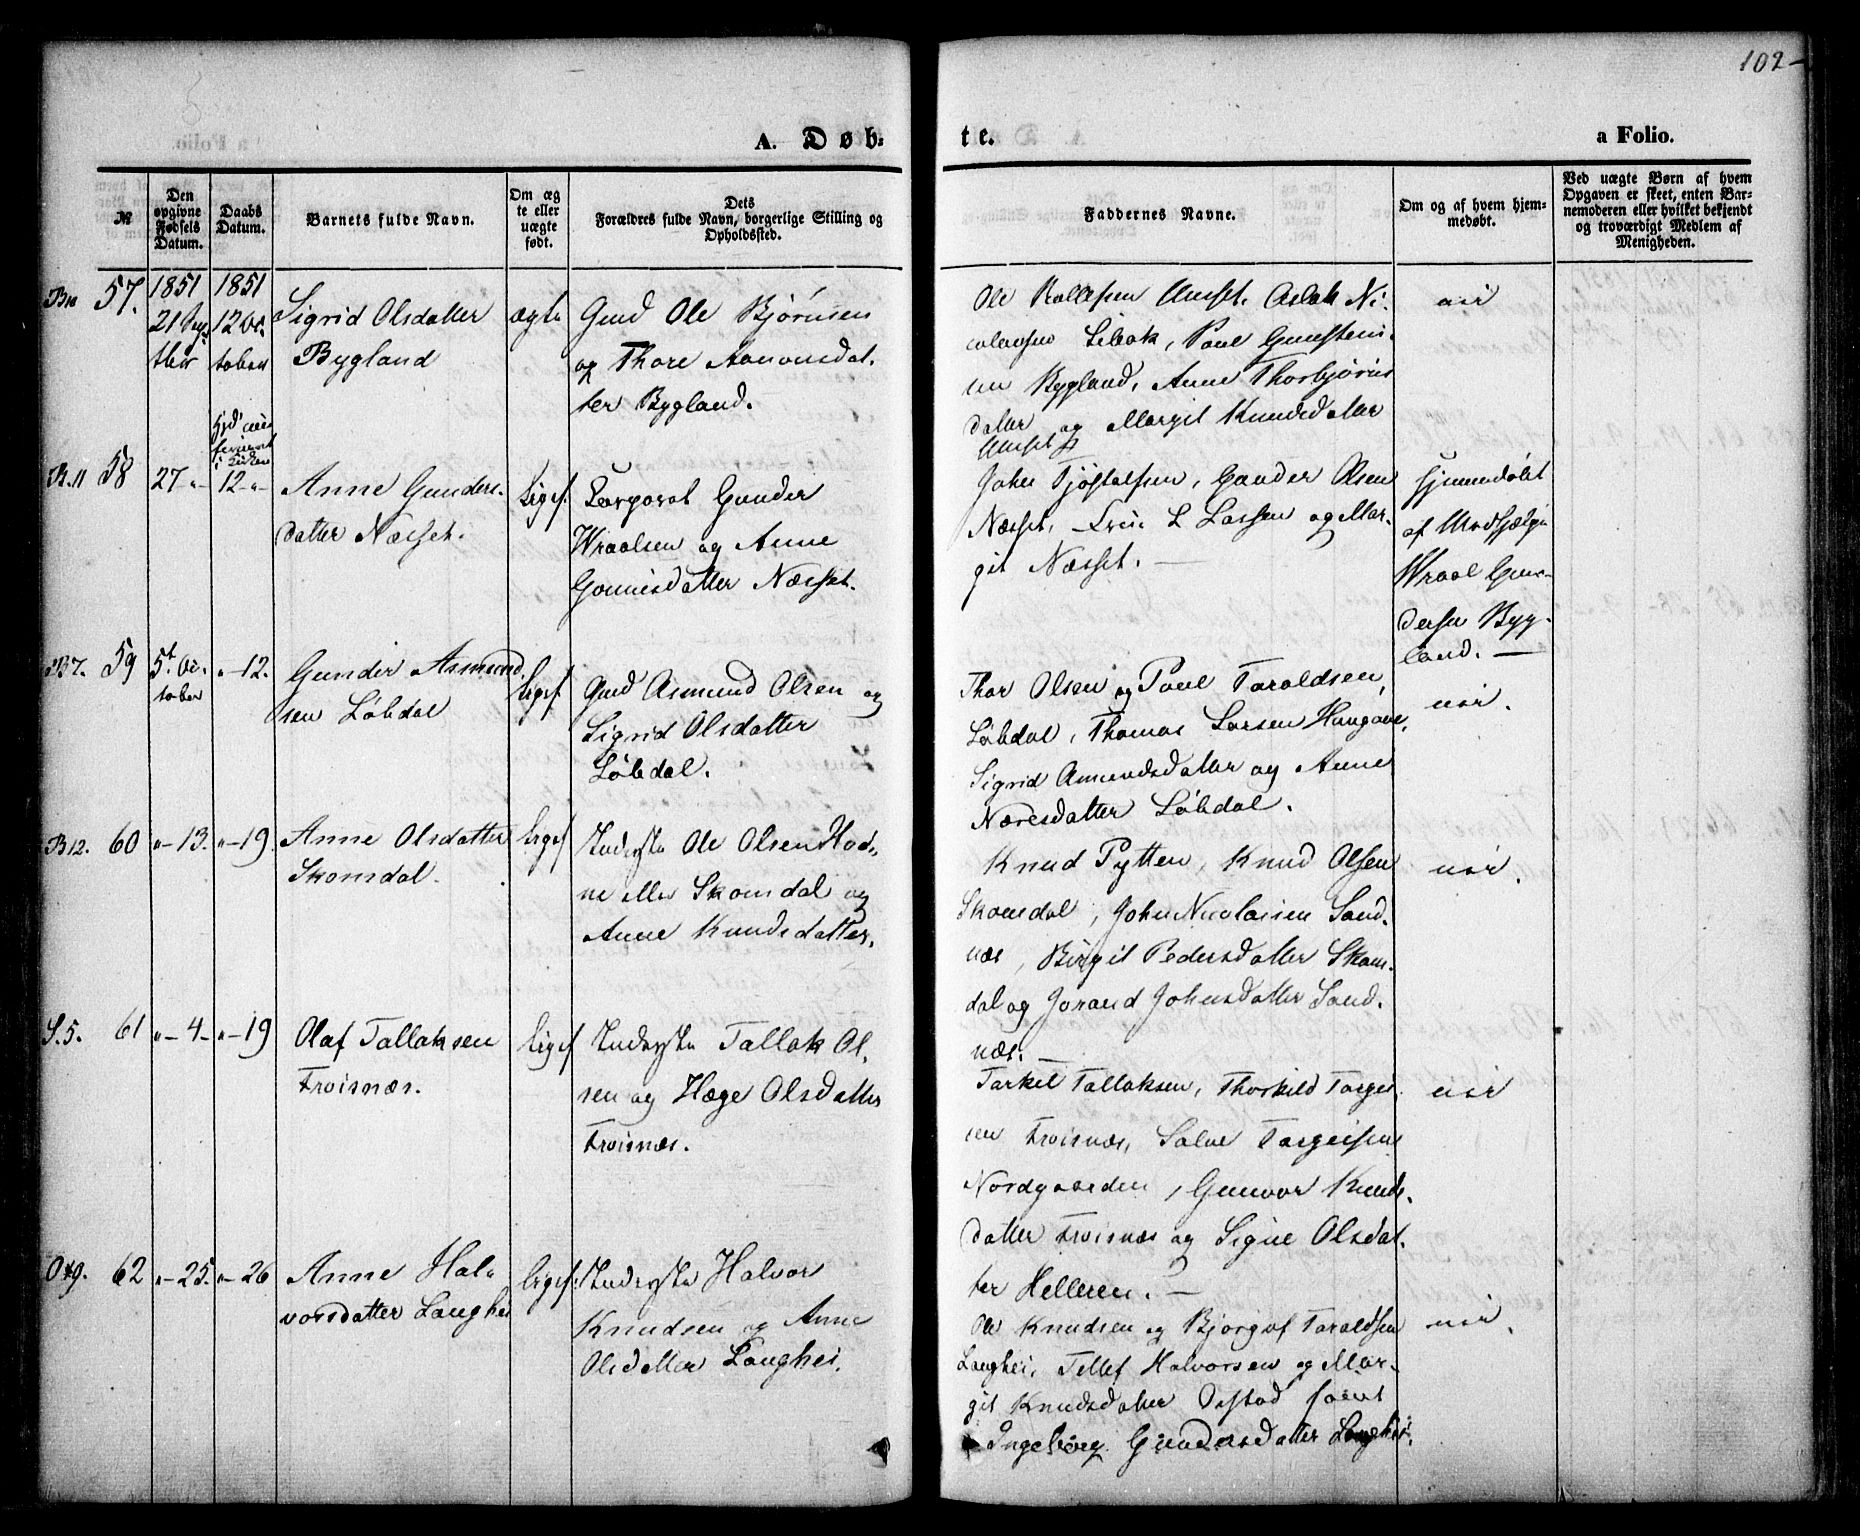 102-
A. Døb-
te.
a Folio.
№
Den opgivne Fødsels Datum.
Daabs Datum.
Barnets fulde Navn.
Om ægte eller uægte født.
Dets Forældres fulde Navn, borgerlige Stilling og Opholdssted.
Faddernes Navne.
Om og af hvem hjemmedøbt.
Ved uægte Børn af hvem Opgaven er skeet, enten Barnemoderen eller hvilket bekjendt og troværdigt Medlem af Menigheden.
B10
57.
1851
21 Sep.
tbr
1851
12 Oc.
tober
Sigrid Olsdatter
Bygland
ægte
Gmd Ole Bjørnsen
og Thore Aanonsdat.
ter Bygland.
Ole Rollefsen Uuset. Aslak Ni-
colaysen Liltok, Poul Gunstens.
sen Bygland, Anne Thorbjørns
datter og Margit Knudsdatter
Uuset
nei
B.11
58
27 "
12 "
i Kirken
Anne Gunders.
datter Næsset.
Liges.
Corporal Gunder
Wraalsen og Anne
Gonnisdatter Næsset.
John Tjøstolfsen, Gunder Olsen
Næsset, L Lassen og Mar-
git Næsset. —
hjemmedøbt
af
Wraal Gun-
dersen Byg-
land. —
B7.
59
5t Oc.
tober
"-12.
Gunder Asmund.
sen Løbdal
Liges
Gmd Asmund Olsen og
Sigrid Olsdatter
Løbdal.
Thor Olsen og Poul Taraldsen,
Løbdal, Thomas Larsen Haugane,
Sigrid Amundsdatter og Anne
Næresdatter Løbdal.
nei.
B12.
60
"-13.
"-19.
Anne Olsdatter
Skomdal.
Liges
Inderste Ole Olsen Hod-
ne eller Skomdal og
Anne Knudsdatter.
Knud Pytten, Knud Olsen
Skomdal, John Nicolaisen Sand-
næs, Birgit Pedersdatter Skom-
dal og Jorand Johnsdatter Sand-
næs. —
nei.
S.5.
61
"-4-
"-19
Olaf Tallaksen
Frøisnæs.
Liges
Inderste Tallak Ol-
sen og Hæge Olsdatter
Frøisnæs.
Tarkel Tallaksen, Thorkild Targei
sen Frøisnæs, Salve Targeisen
Nordgaarden, Gunvor Knuds-
datter Frøisnæs og Signe Olsdat-
ter Helleren. —
nei
O29.
62
"-25.
"-26
Anne Hal-
vorsdatter Langhei
Liges.
Inderste Halvor
Knudsen og Anne
Olsdatter Langhei.
Ole Knudsen og Bjorguf Taraldsen
Langhei, Tellef Halvorsen og Mar-
git Knudsdatter Ofstad samt
Ingeborg Gundersdatter Langhei.
nei.